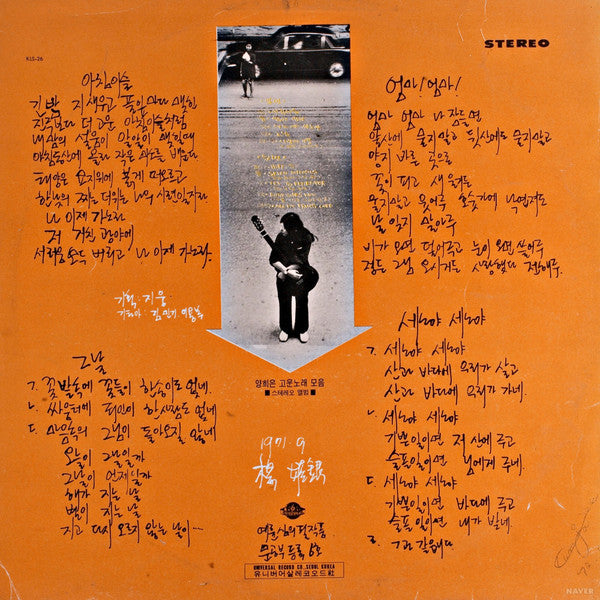 KLS-26
STEREO
아침이슬
긴 밤 지새우고 풀잎마다 맺힌
진주보다 더 고운 아침이슬처럼
내 맘의 설움이 알알이 맺힐때
아침동산에 올라 작은 미소를 배운다
태양은 묘지위에 붉게 떠오르고
한낮의 찌는 더위는 나의 시련일지라
나 이제 가노라
저 거친 광야에
서러움 모두 버리고 나 이제 가노라.
기획·지웅
기타아·김민기 이용복
그날
ㄱ. 꽃밭속에 꽃들이 한송이도 없네.
ㄴ. 싸움터에 죄인이 한사람도 없네
ㄷ. 마음속의 그님이 돌아오질 않네
오늘이 그날일까
그날이 언제일까
해가 지는 날
별이 지는 날
지고 다시 오르지 않는 날이…
양희은 고운노래 모음
■ 스테레오 앨범 ■
1971.9
楊姬銀
문공부등록 6호
UNIVERSAL RECORD CO., SEOUL KOREA
유니버어살레코오드社
엄마! 엄마!
엄마 엄마 나 잠들면
앞산에 묻지말고 뒷산에도 묻지말고
양지 바른 곳으로
꽃이 피고 새 울면
묻지말고
날 잊지 말아주
비가 오면 덮어주고 눈이 오면 쓸어주
정든 그님 오시거든 사랑했다 전해주.
세노야 세노야
ㄱ. 세노야 세노야
산과 바다에 우리가 살고
산과 바다에 우리가 가네.
ㄴ. 세노야 세노야
기쁜일이면 저 산에 주고
슬픈일이면 님에게 주네.
ㄷ. 세노야 세노야
기쁜일이면 바다에 주고
슬픈일이면 내가 받네
ㄹ. ㄱ과 같습니다
NAVER